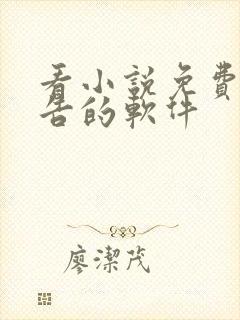 看小說免費
告的軟件
廖潔茂